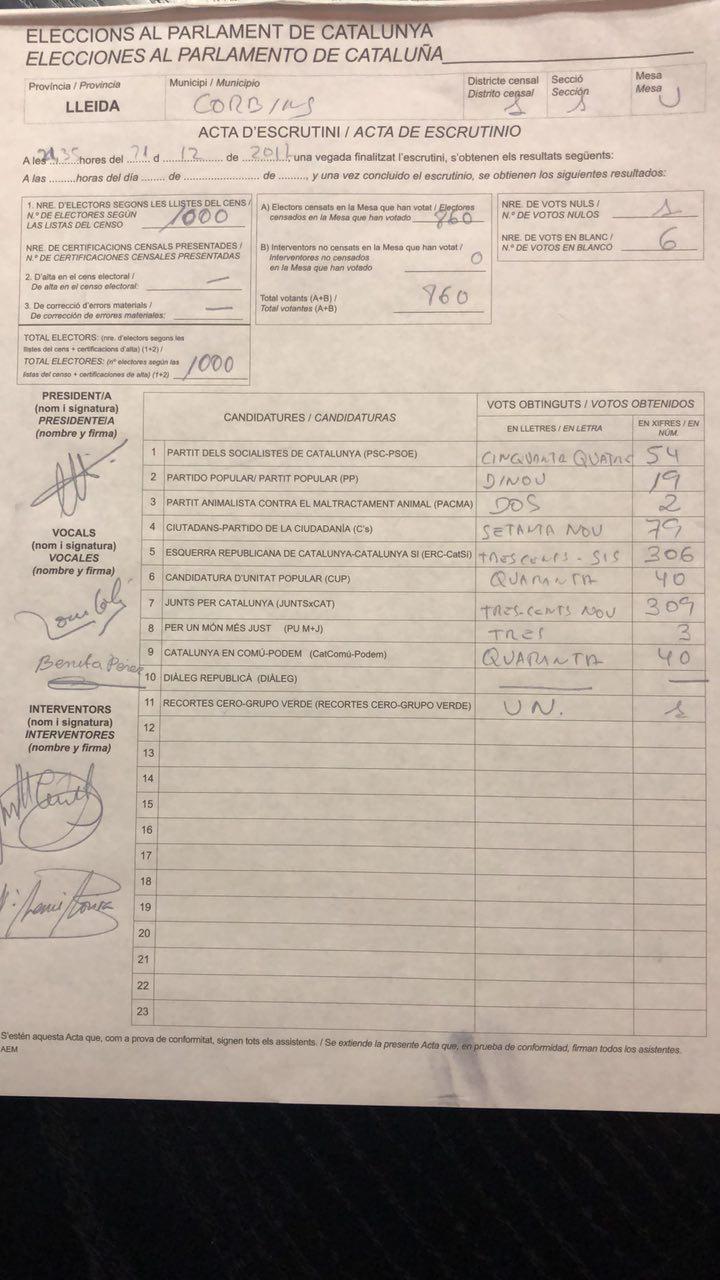 ELECCIONS AL PARLAMENT DE CATALUNYA
ELECCIONES AL PARLAMENTO DE CATALUÑA
Província / Provincia
LLEIDA
Municipi / Municipio
CORBINS
Districte censal
Distrito censal
1
Secció
Sección
1
Mesa
Mesa
U
ACTA D'ESCRUTINI / ACTA DE ESCRUTINIO
A les 21:35 hores del 21 d 12 de , una vegada finalitzat l'escrutini, s'obtenen els resultats següents:
A las ........horas del día ........ de ..................... de ........, y una vez concluido el escrutinio, se obtienen los siguientes resultados:
1. NRE. D'ELECTORS SEGONS LES LLISTES DEL CENS /
N.º DE ELECTORES SEGÚN
LAS LISTAS DEL CENSO 1000
NRE. DE CERTIFICACIONS CENSALS PRESENTADES /
N.º DE CERTIFICACIONES CENSALES PRESENTADAS
2. D'alta en el cens electoral /
De alta en el censo electoral: —
3. De correcció d'errors materials /
De corrección de errores materiales: —
TOTAL ELECTORS: (nre. d'electors segons les
llistes del cens + certificacions d'alta) (1+2) /
TOTAL ELECTORES: (nº electores según las
listas del censo + certificaciones de alta) (1+2) 1000
A) Electors censats en la Mesa que han votat / Electores
censados en la Mesa que han votado 860
B) Interventors no censats en la Mesa que han votat /
Interventores no censados
en la Mesa que han votado 0
Total votants (A+B) /
Total votantes (A+B) 860
NRE. DE VOTS NULS /
N.º DE VOTOS NULOS 1
NRE. DE VOTS EN BLANC /
N.º DE VOTOS EN BLANCO 6
PRESIDENT/A
(nom i signatura)
PRESIDENTE/A
(nombre y firma)
VOCALS
(nom i signatura)
VOCALES
(nombre y firma)
Benita Pérez
INTERVENTORS
(nom i signatura)
INTERVENTORES
(nombre y firma)
CANDIDATURES / CANDIDATURAS
VOTS OBTINGUTS / VOTOS OBTENIDOS
EN LLETRES / EN LETRA
EN XIFRES / EN NÚM.
1 PARTIT DELS SOCIALISTES DE CATALUNYA (PSC-PSOE) CINQUANTA QUATRE 54
2 PARTIDO POPULAR/ PARTIT POPULAR (PP) DINOU 19
3 PARTIT ANIMALISTA CONTRA EL MALTRACTAMENT ANIMAL (PACMA) DOS 2
4 CIUTADANS-PARTIDO DE LA CIUDADANÍA (C's) SETANTA NOU 79
5 ESQUERRA REPUBLICANA DE CATALUNYA-CATALUNYA SI (ERC-CatSí) TRES CENTS - SIS 306
6 CANDIDATURA D'UNITAT POPULAR (CUP) QUARANTA 40
7 JUNTS PER CATALUNYA (JUNTSxCAT) TRES-CENTS NOU 309
8 PER UN MÓN MÉS JUST (PU M+J) TRES 3
9 CATALUNYA EN COMÚ-PODEM (CatComú-Podem) QUARANTA 40
10 DIÀLEG REPUBLICÀ (DIÀLEG) — —
11 RECORTES CERO-GRUPO VERDE (RECORTES CERO-GRUPO VERDE) UN. 1
12
13
14
15
16
17
18
19
20
21
22
23
S'estén aquesta Acta que, com a prova de conformitat, signen tots els assistents. / Se extiende la presente Acta que, en prueba de conformidad, firman todos los asistentes.
AEM